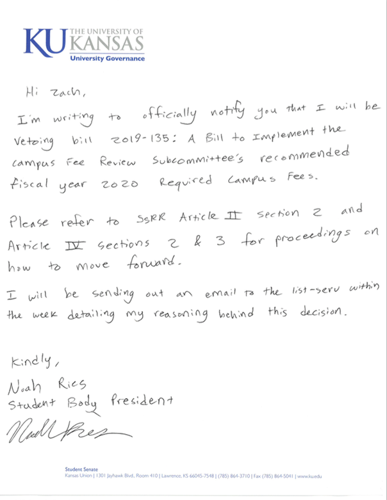 KU THE UNIVERSITY OF
KANSAS
University Governance
Hi Zach,
I'm writing to officially notify you that I will be
vetoing bill 2019-135: A Bill to Implement the
campus Fee Review Subcommittee's recommended
fiscal year 2020 Required Campus Fees.
Please refer to SSRR Article II section 2 and
Article IV sections 2 & 3 for proceedings on
how to move forward.
I will be sending out an email to the list-serv within
the week detailing my reasoning behind this decision.
Kindly,
Noah Ries
Student Body President
Noah Ries
Student Senate
Kansas Union | 1301 Jayhawk Blvd, Room 410 | Lawrence, KS 66045-7548 | (785) 864-3710 | Fax (785) 864-5041 | www.ku.edu